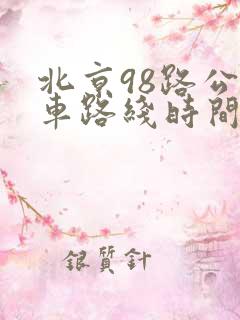 北京98路公
車路綫時間
銀質針